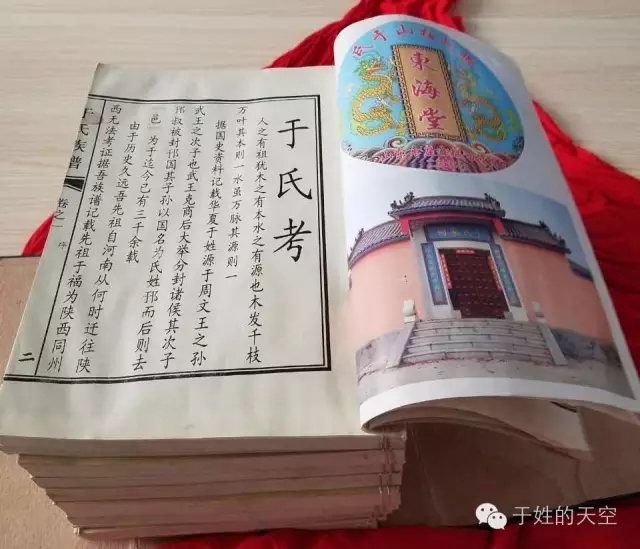 于氏考
人之有祖犹木之有本水之有源也木发千枝
万叶其本则一水虽万脉其源则一
据国史资料记载华夏于姓源于周文王之孙
武王之次子也武王克商后大举分封诸侯其次子
邘叔被封邘国其子孙以国名为氏姓邘而后则去
「邑」为于迄今已有三千余载
由于历史久远吾先祖自河南从何时迁往陕
西无法考证据吾族谱记载先祖于福为陕西同州
于氏族谱
卷之一
序
二
東海堂
于姓的天空